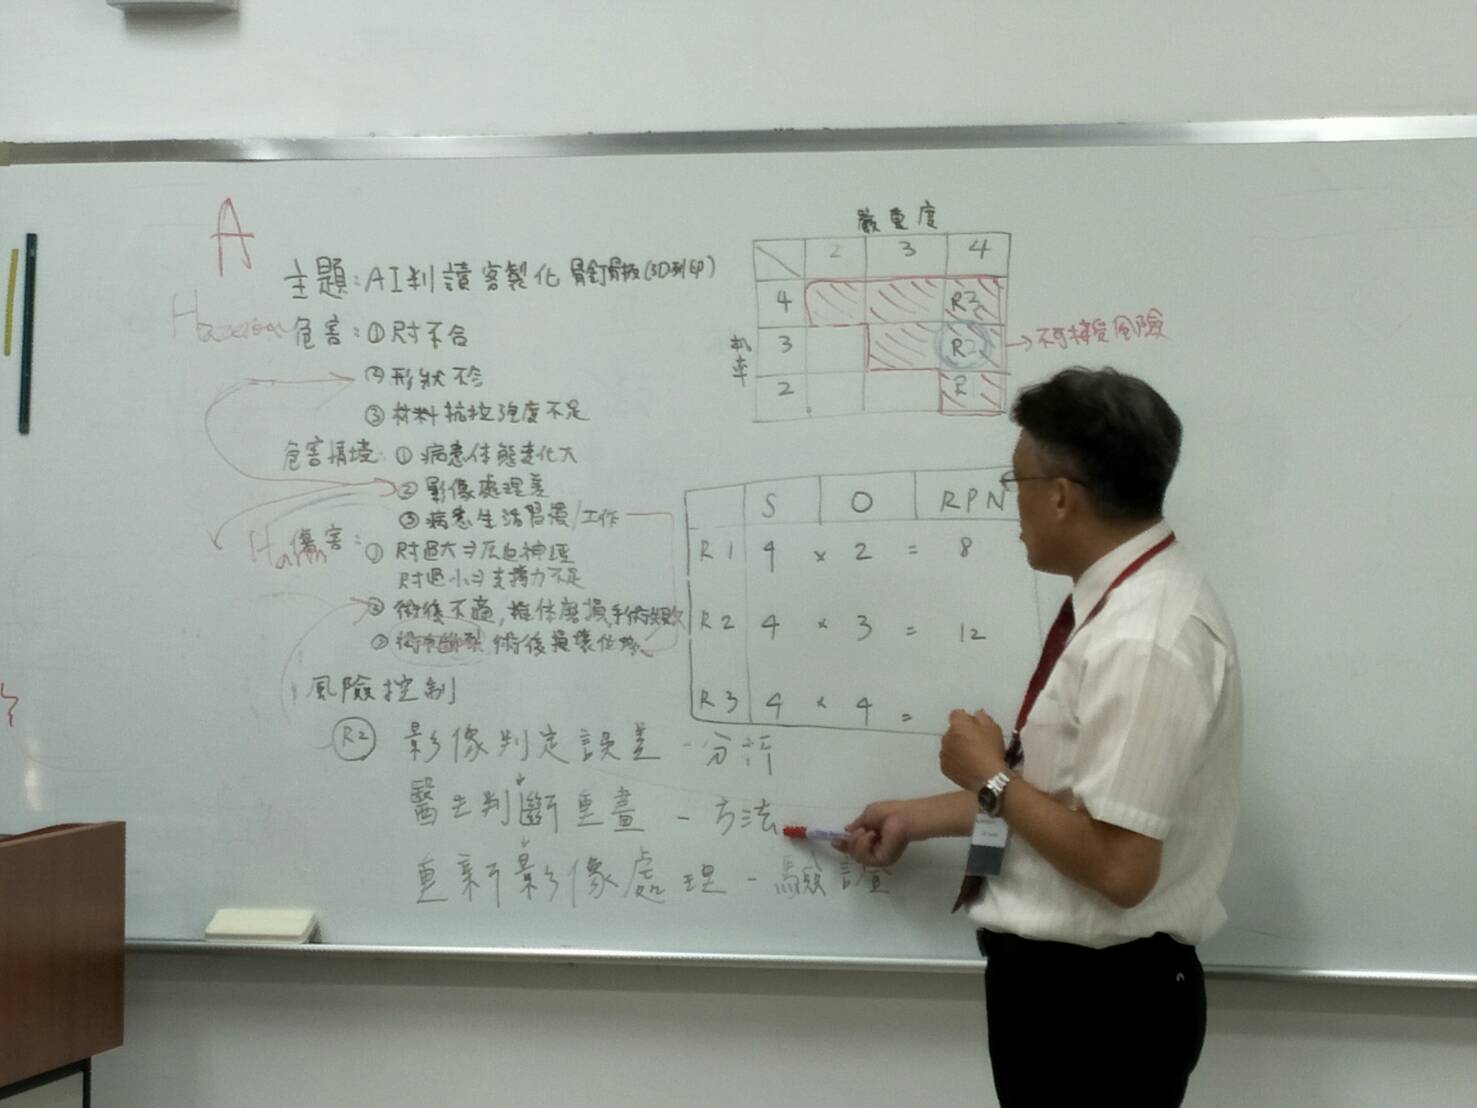 A
主題:AI判讀客製化骨釘骨板(3D列印)
危害:①尺寸不合
②形狀不合
③材料抗拉強度不足
危害情境:①病患体態变化大
②影像處理差
③病患生活習慣/工作
Harm 傷害:
①尺寸過大⇒压迫神經
尺寸過小⇒支撐力不足
②術後不適,椎体磨損,手術失敗
③術中斷裂 術後損壞
風險控制
R2 影像判定誤差-分析
醫生判斷重畫-方法
重新影像處理-驗證
嚴重度
2 3 4
機率
4 R3
3 R2
2 R
→不可接受風險
S O RPN
R1 4 × 2 = 8
R2 4 × 3 = 12
R3 4 × 4 =